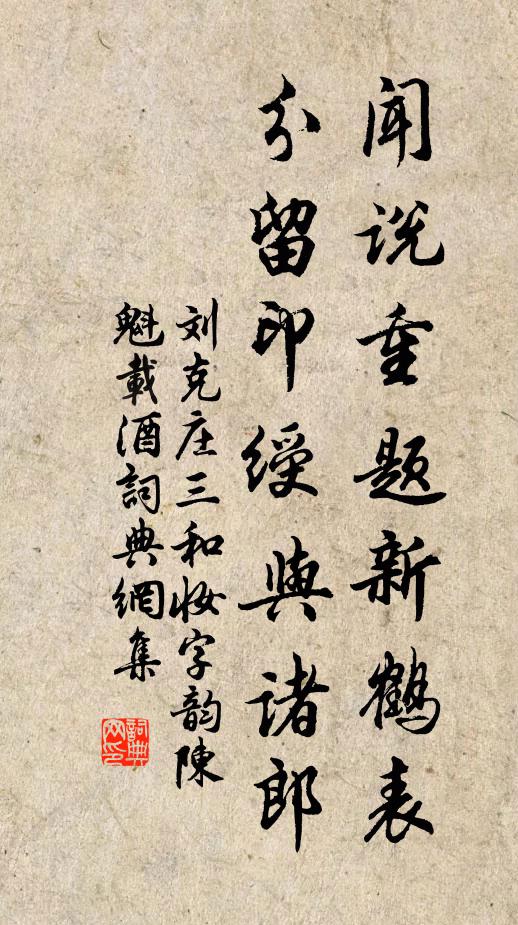 闻说重题新鹤表
分留印绶與诸郎
刘克庄三和妆字韵陳
魁載酒詞典網集
詞典網印